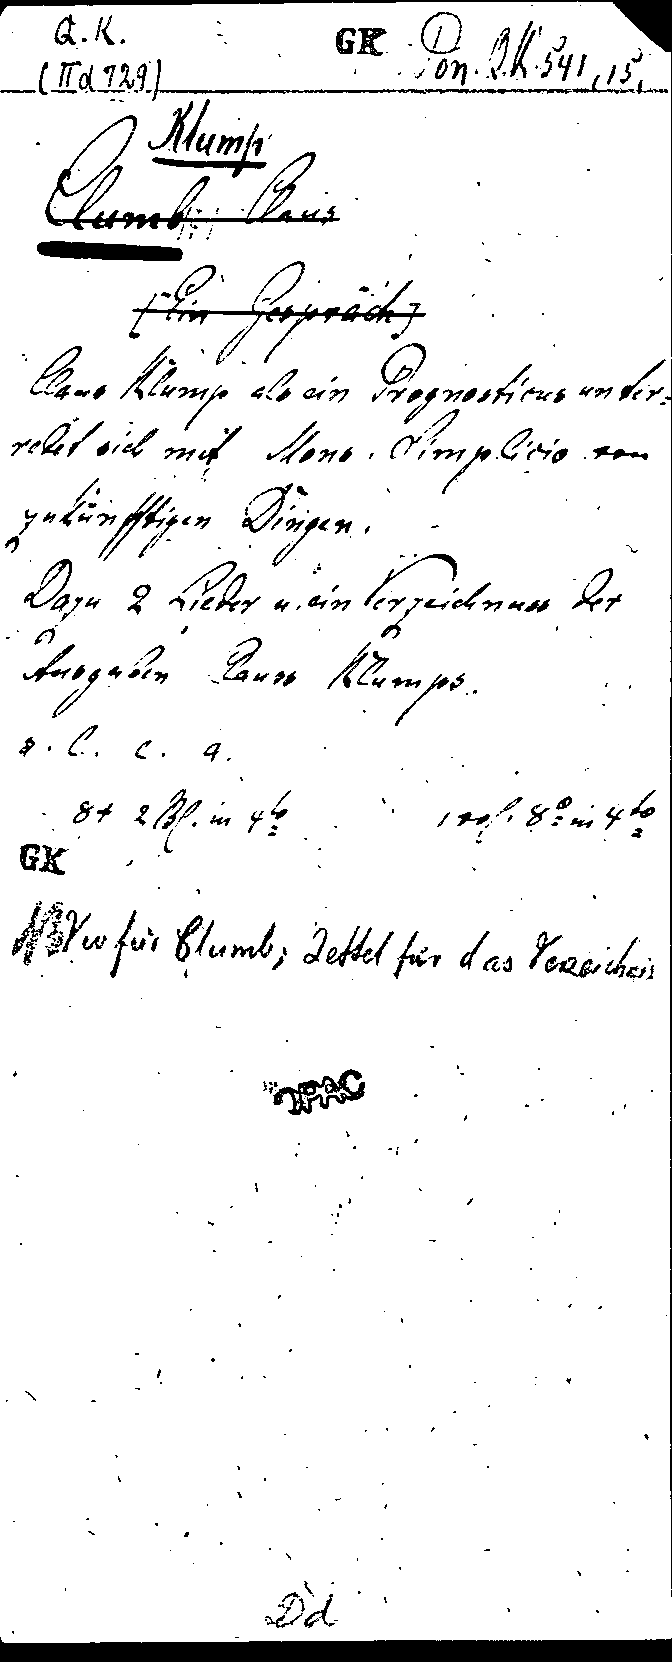 Q. K. GK Pon. QK 541, 15,
(II d 729)
Klump
Clumb, Claus
[Ein Gespräch]
Claus Klump als ein Prognosticus unter-
redet sich mit Mons. Simplicio von
zukünfftigen Dingen.
Dazu 2 Lieder u. ein Verzeichnuss der
Ausgaben Clauss Klumps.
s. l. c. a.
8 + 2 Bl. in 4to 8o in 4to
GK
NB Vw für Clumb; Zettel für das Verzeichnis
OPAC
Dd